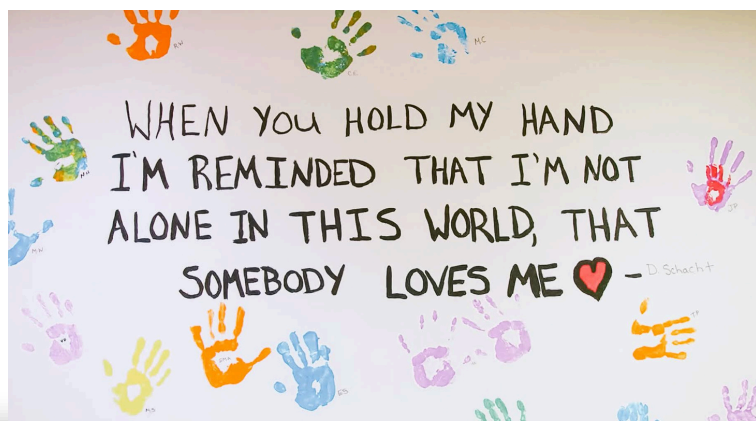 RW
CK
MC
WHEN YOU HOLD MY HAND
I'M REMINDED THAT I'M NOT
ALONE IN THIS WORLD, THAT
SOMEBODY LOVES ME ♥ - D. Schacht
JP
MB